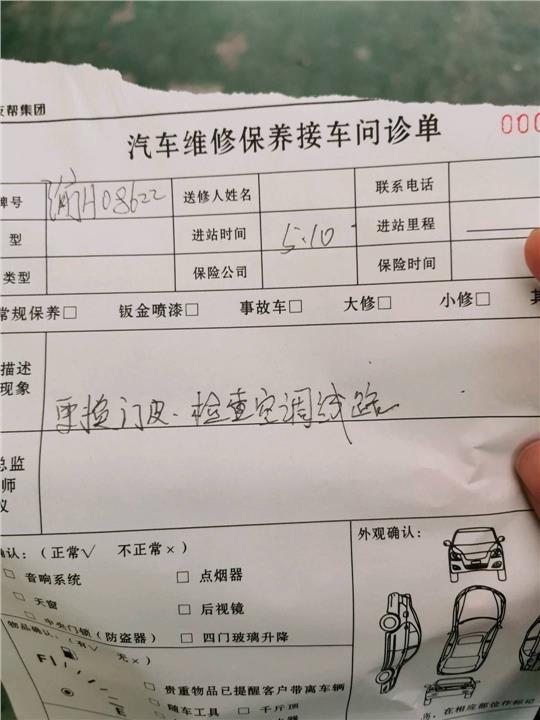 友帮集团
汽车维修保养接车问诊单 000
牌号 渝H08622 送修人姓名 联系电话
型 进站时间 5.10 进站里程
类型 保险公司 保险时间
常规保养□ 钣金喷漆□ 事故车□ 大修□ 小修□ 其
描述
现象
更换门皮.检查空调线路
总监
师
议
确认:(正常√ 不正常×) 外观确认:
□ 音响系统 □ 点烟器
□ 天窗 □ 后视镜
□ 中央门锁(防盗器) □ 四门玻璃升降
物品确认:(有√ 无×)
F
□ 贵重物品已提醒客户带离车辆
E □ 随车工具 □ 千斤顶
,在相应部位作标记